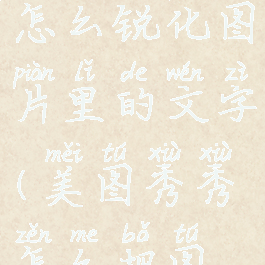 怎么锐化图
piàn lǐ de wén zì
片里的文字
měi tú xiù xiù
(美图秀秀
zěn me bǎ tú
怎么把图